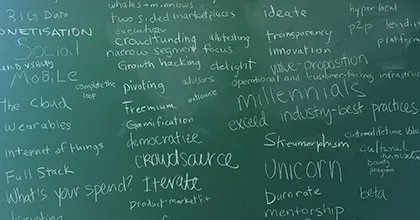 BIG Data
MONETISATION
Social
Mobile
complete the
loop
The Cloud
wearables
internet of things
Full Stack
What's your spend?
whales + minnows
two sided marketplaces
gamification
crowdfunding
narrow segment focus
Growth hacking
delight
pivoting
advisors
Freemium
Gamification
democratize
crowdsource
Iterate
product market fit
ideate
transparency
innovation
value-proposition
operational and customer-facing
millennials
exceed industry-best practices
Skeumorphism
customer lifetime value
cultural
bounty
program
unicorn
burnrate
beta
mentorship
hyper local
p2p
platform